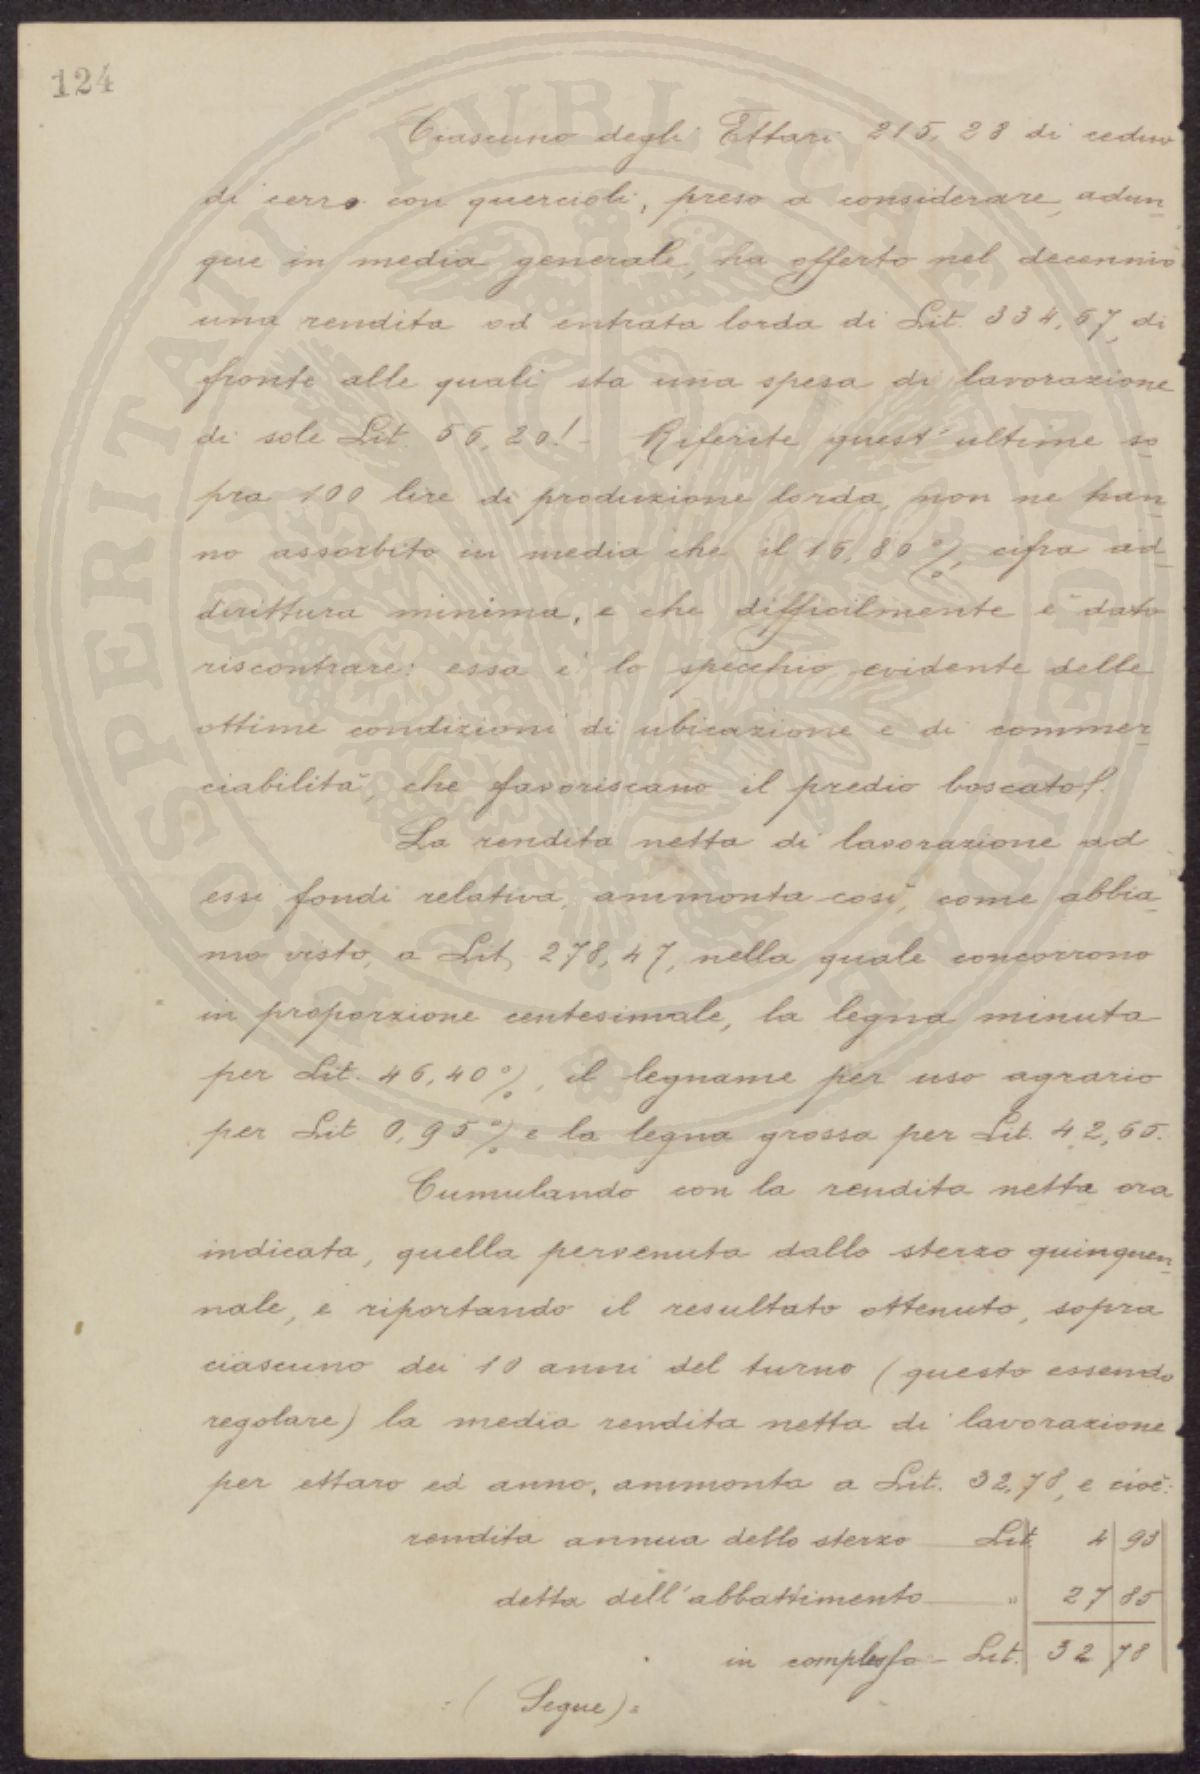 124
Ciascuno degli Ettari 215,28 di ceduo
di cerro con quercioli, preso a considerare, adun-
que in media generale, ha offerto nel decennio
una rendita od entrata lorda di Lit. 334,67, di
fronte alle quali sta una spesa di lavorazione
di sole Lit. 56,20!- Riferite quest'ultime so-
pra 100 lire di produzione lorda, non ne han-
no assorbito in media che il 16,80%, cifra ad-
dirittura minima, e che difficilmente è dato
riscontrare: essa è lo specchio evidente delle
ottime condizioni di ubicazione e di commer-
ciabilità, che favoriscano il predio boscato!.
La rendita netta di lavorazione ad
essi fondi relativa, ammonta così, come abbia-
mo visto, a Lit. 278,47, nella quale concorrono
in proporzione centesimale, la legna minuta
per Lit. 46,40%, il legname per uso agrario
per Lit 0,95% e la legna grossa per Lit. 42,65.
Cumulando con la rendita netta ora
indicata, quella pervenuta dallo sterzo quinquen-
nale, e riportando il resultato ottenuto, sopra
ciascuno dei 10 anni del turno (questo essendo
regolare) la media rendita netta di lavorazione
per ettaro ed anno, ammonta a Lit. 32,78, e cioè:
rendita annua dello sterzo Lit 4 93
detta dell'abbattimento " 27 85
in complesso - Lit. 32 78
=( Segue)=
PROSPERITATI PVBLICAE AVGENDAE